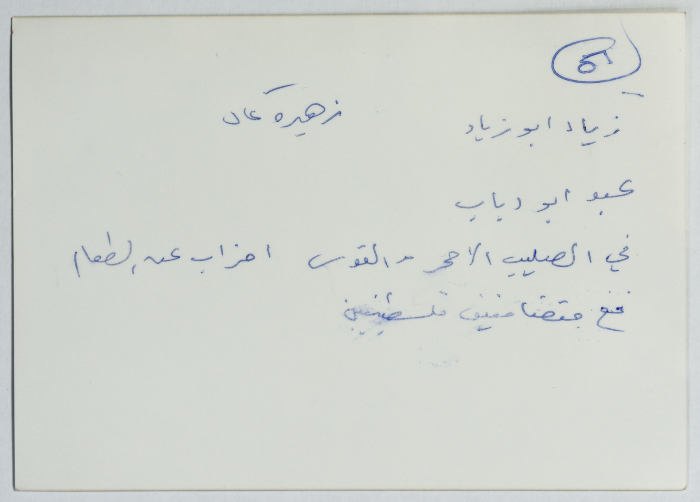 ٥١
زياد ابو زياد زهيرة كمال
عبد ابو دياب
في الصليب الاحمر والقدس اضراب عن الطعام
مع متضامنين فلسطينيين